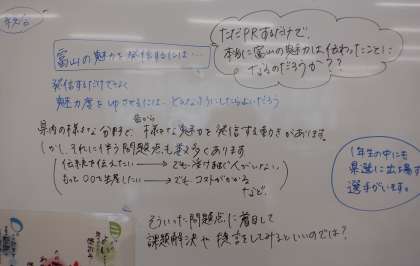 ただPRするだけで、
本当に富山の魅力は伝わったことに
なるのだろうか??
富山の魅力を発信するには…
発信するだけでなく
魅力度を
するには…
いいだろう
昔から
県内の様々な分野で、様々な魅力を発信する動きがあります。
しかし、それに伴う問題点も
多くあります
伝統を伝えたい → でも、
人がいない。
もっと〇〇を
したい → でも コストがかかる
など、
1年生の中にも
県選に出場する
選手がいます。
そういった問題点に着目して
課題解決や提言をしてみるといいのでは?